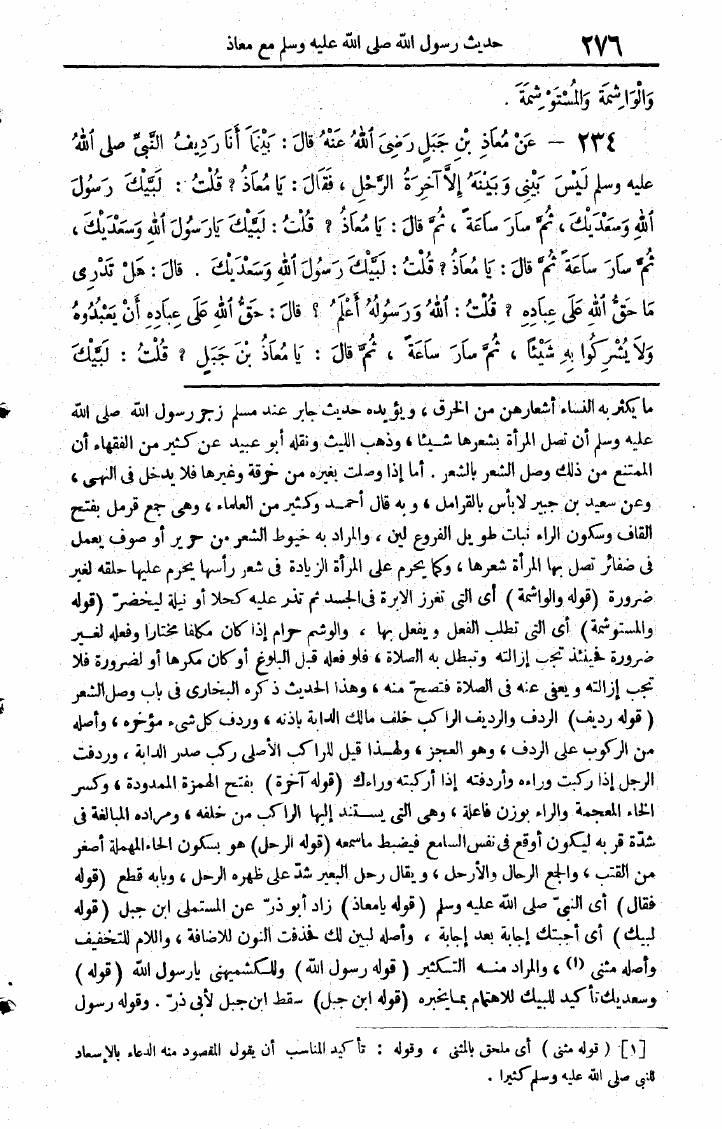 حديث رسول الله صلى الله عليه وسلم مع معاذ ٢٧٦
وَالْوَاشِمَةَ وَالْمُسْتَوْشِمَةَ .
٢٣٤ — عَنْ مُعَاذِ بْنِ جَبَلٍ رَضِيَ اللهُ عَنْهُ قَالَ : بَيْنَمَا أَنَا رَدِيفُ النَّبِيِّ صلى اللهُ
عليه وسلم لَيْسَ بَيْنِى وَبَيْنَهُ إِلاَّ آخِرَةُ الرَّحْلِ ، فَقَالَ : يَا مُعَاذُ ؟ قُلْتُ : لَبَّيْكَ رَسُولَ
اللهِ وَسَعْدَيْكَ ، ثُمَّ سَارَ سَاعَةً ، ثُمَّ قَالَ : يَا مُعَاذُ ؟ قُلْتُ : لَبَّيْكَ يَارَسُولَ اللهِ وَسَعْدَيْكَ ،
ثُمَّ سَارَ سَاعَةً ثُمَّ قَالَ : يَا مُعَاذُ ؟ قُلْتُ : لَبَّيْكَ رَسُولَ اللهِ وَسَعْدَيْكَ . قالَ : هَلْ تَدْرِى
مَا حَقُّ اللهِ عَلَى عِبَادِهِ ؟ قُلْتُ : اللهُ وَرَسُولُهُ أَعْلَمُ ؟ قالَ : حَقُّ اللهِ عَلَى عِبَادِهِ أَنْ يَعْبُدُوهُ
وَلاَ يُشْرِكُوا بِهِ شَيْئًا ، ثُمَّ سَارَ سَاعَةً ، ثُمَّ قَالَ : يَا مُعَاذُ بْنَ جَبَلٍ ؟ قُلْتُ : لَبَّيْكَ
ما يكثر به النساء أشعارهن من الخرق ، ويؤيده حديث جابر عند مسلم زجر رسول الله صلى الله
عليه وسلم أن تصل المرأة بشعرها شيئا ، وذهب الليث ونقله أبو عبيد عن كثير من الفقهاء أن
الممتنع من ذلك وصل الشعر بالشعر . أما إذا وصلت بغيره من خرقة وغيرها فلا يدخل فى النهى ،
وعن سعيد بن جبير لابأس بالقرامل ، وبه قال أحمد وكثير من العلماء ، وهى جمع قرمل بفتح
القاف وسكون الراء نبات طويل الفروع لين ، والمراد به خيوط الشعر من حرير أو صوف يعمل
فى ضفائر تصل بها المرأة شعرها ، وكما يحرم على المرأة الزيادة فى شعر رأسها يحرم عليها حلقه لغير
ضرورة (قوله والواشمة) أى التى تغرز الابرة فى الجسد ثم تذر عليه كحلا أو نيلة ليخضرّ (قوله
والمستوشمة) أى التى تطلب الفعل ويفعل بها ، والوشم حرام إذا كان مكلفا مختارا وفعله لغير
ضرورة فحينئذ تجب إزالته وتبطل به الصلاة ، فلو فعله قبل البلوغ أو كان مكرها أو لضرورة فلا
تجب إزالته ويعفى عنه فى الصلاة فتصح منه ، وهذا الحديث ذكره البخارى فى باب وصل الشعر
(قوله رديف) الردف والرديف الراكب خلف مالك الدابة باذنه ، وردف كل شىء مؤخره ، وأصله
من الركوب على الردف ، وهو العجز ، ولهذا قيل للراكب الأصلى ركب صدر الدابة ، وردفت
الرجل إذا ركبت وراءه وأردفته إذا أركبته وراءك (قوله آخرة) بفتح الهمزة الممدودة ، وكسر
الخاء المعجمة والراء بوزن فاعلة ، وهى التى يستند إليها الراكب من خلفه ، ومراده المبالغة فى
شدّة قربه ليكون أوقع فى نفس السامع فيضبط ماسمعه (قوله الرحل) هو بسكون الحاء المهملة أصغر
من القتب ، والجمع الرحال والأرحل ، ويقال رحل البعير شدّ على ظهره الرحل ، وبابه قطع (قوله
فقال) أى النبىّ صلى الله عليه وسلم (قوله يامعاذ) زاد أبو ذرّ عن المستملى ابن جبل (قوله
لبيك) أى أجبتك إجابة بعد إجابة ، وأصله لبين لك فحذفت النون للاضافة ، واللام للتخفيف
وأصله مثنى (١) ، والمراد منه التكثير (قوله رسول الله) وللكشميهنى يارسول الله (قوله)
وسعديك تأكيد للبيك للاهتمام بما يخبره (قوله ابن جبل) سقط ابن جبل لأبى ذرّ . وقوله رسول
[١] (قوله مثنى) أى ملحق بالمثنى ، وقوله : تأكيد المناسب أن يقول المقصود منه الدعاء بالإسعاد
للنبى صلى الله عليه وسلم كثيرا .